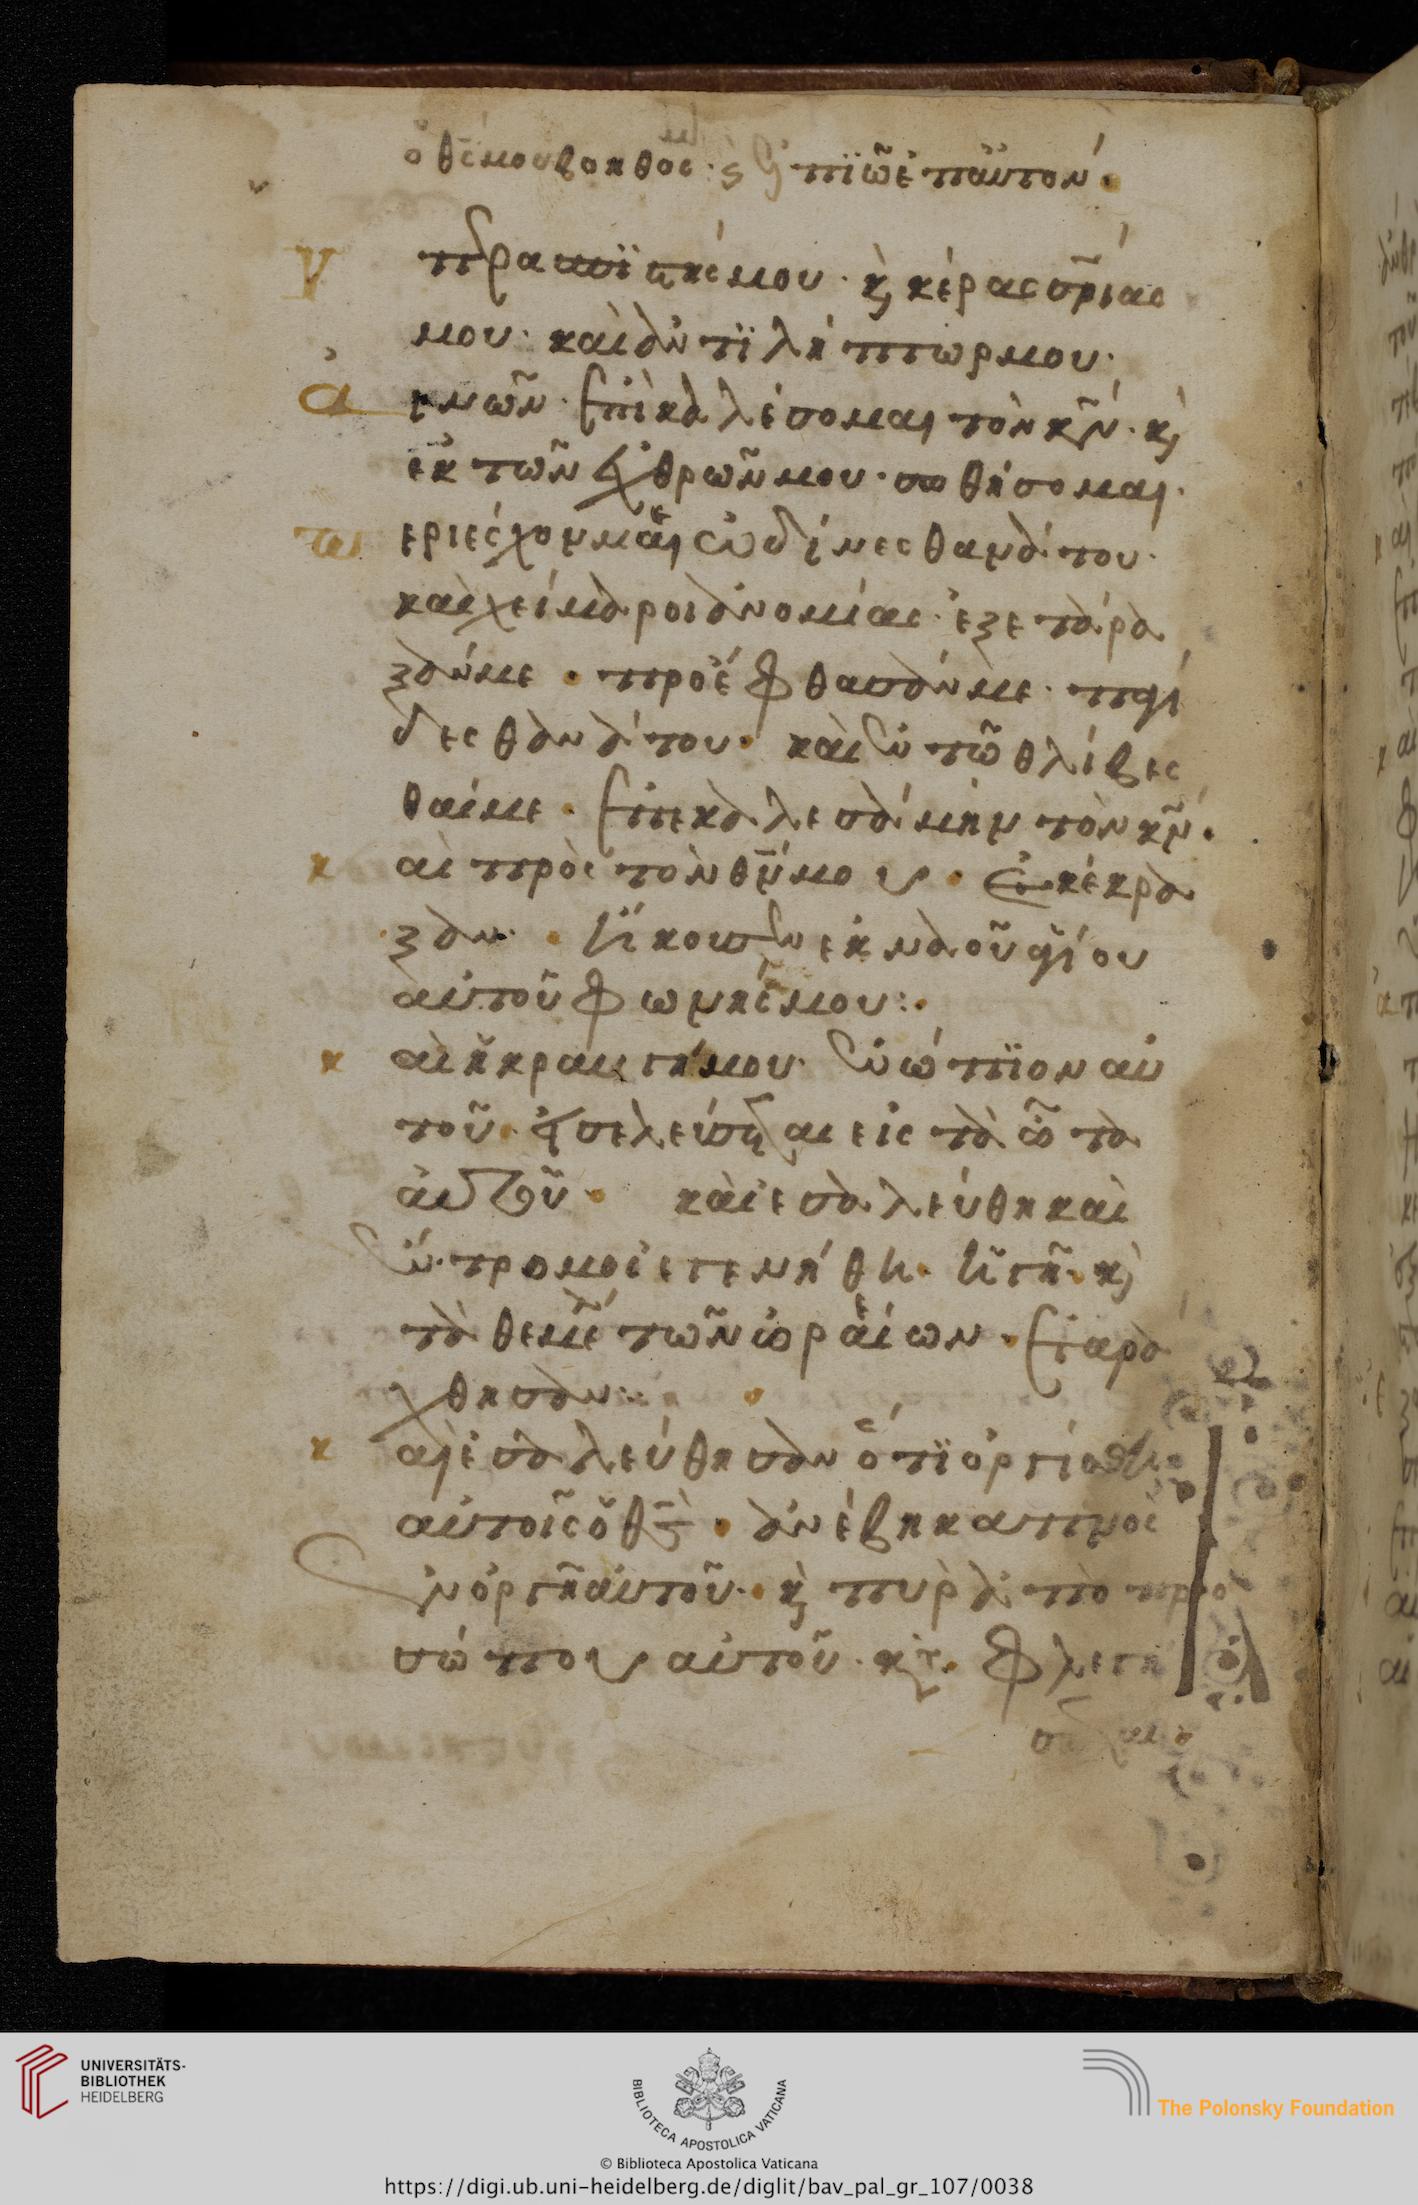 ὁ θς μου βοηθός μου· ς ἐλπιῶ ἐπ αὐτόν.
Υπερασπϊστής μου· κ κέρας σρίας
μου· καὶ ἀντϊλήπτωρ μου·
Αἰνῶν ἐπικαλέσομαι τὸν κν· κ
ἐκ τῶν ἐχθρῶν μου· σωθήσομαι·
περιέσχον με ὠδίνες θανάτου·
καὶ χείμαροι ἀνομίας ἐξετάρα
ξάν με · προέφθασάν με παγί
δες θανάτου· καὶ ἐν τῶ θλίβεσ
θαί με · ἐπεκαλεσάμην τὸν κν·
καὶ πρὸς τὸν θν μου · ἐκέκρα
ξαν · ἤκουσεν ἐκ ναοῦ ἁγίου
αὐτοῦ φωνῆς μου:·
καὶ ἡ κραυγή μου· ἐνώπϊον αὐ
τοῦ· εἰσελεύσεται εἰς τὰ ὦτα
αὐτοῦ · καὶ ἐσαλεύθη καὶ
ἔντρομος ἐγενήθη· ἡ γῆ· κ
τὰ θεμέλια τῶν ὀρέων · ἐταρά
χθησαν:
καὶ ἐσαλεύθησαν ὅτϊ ὀργίσθη
αὐτοῖς ὁ θς · ἀνέβη καπνὸς
ἐν ὀργῆ αὐτοῦ· κ πῦρ ἀπὸ προ
σώπου αὐτοῦ· κατ φλεγή
σεται
UNIVERSITÄTS-
BIBLIOTHEK
HEIDELBERG
BIBLIOTECA APOSTOLICA VATICANA
The Polonsky Foundation
© Biblioteca Apostolica Vaticana
https://digi.ub.uni-heidelberg.de/diglit/bav_pal_gr_107/0038